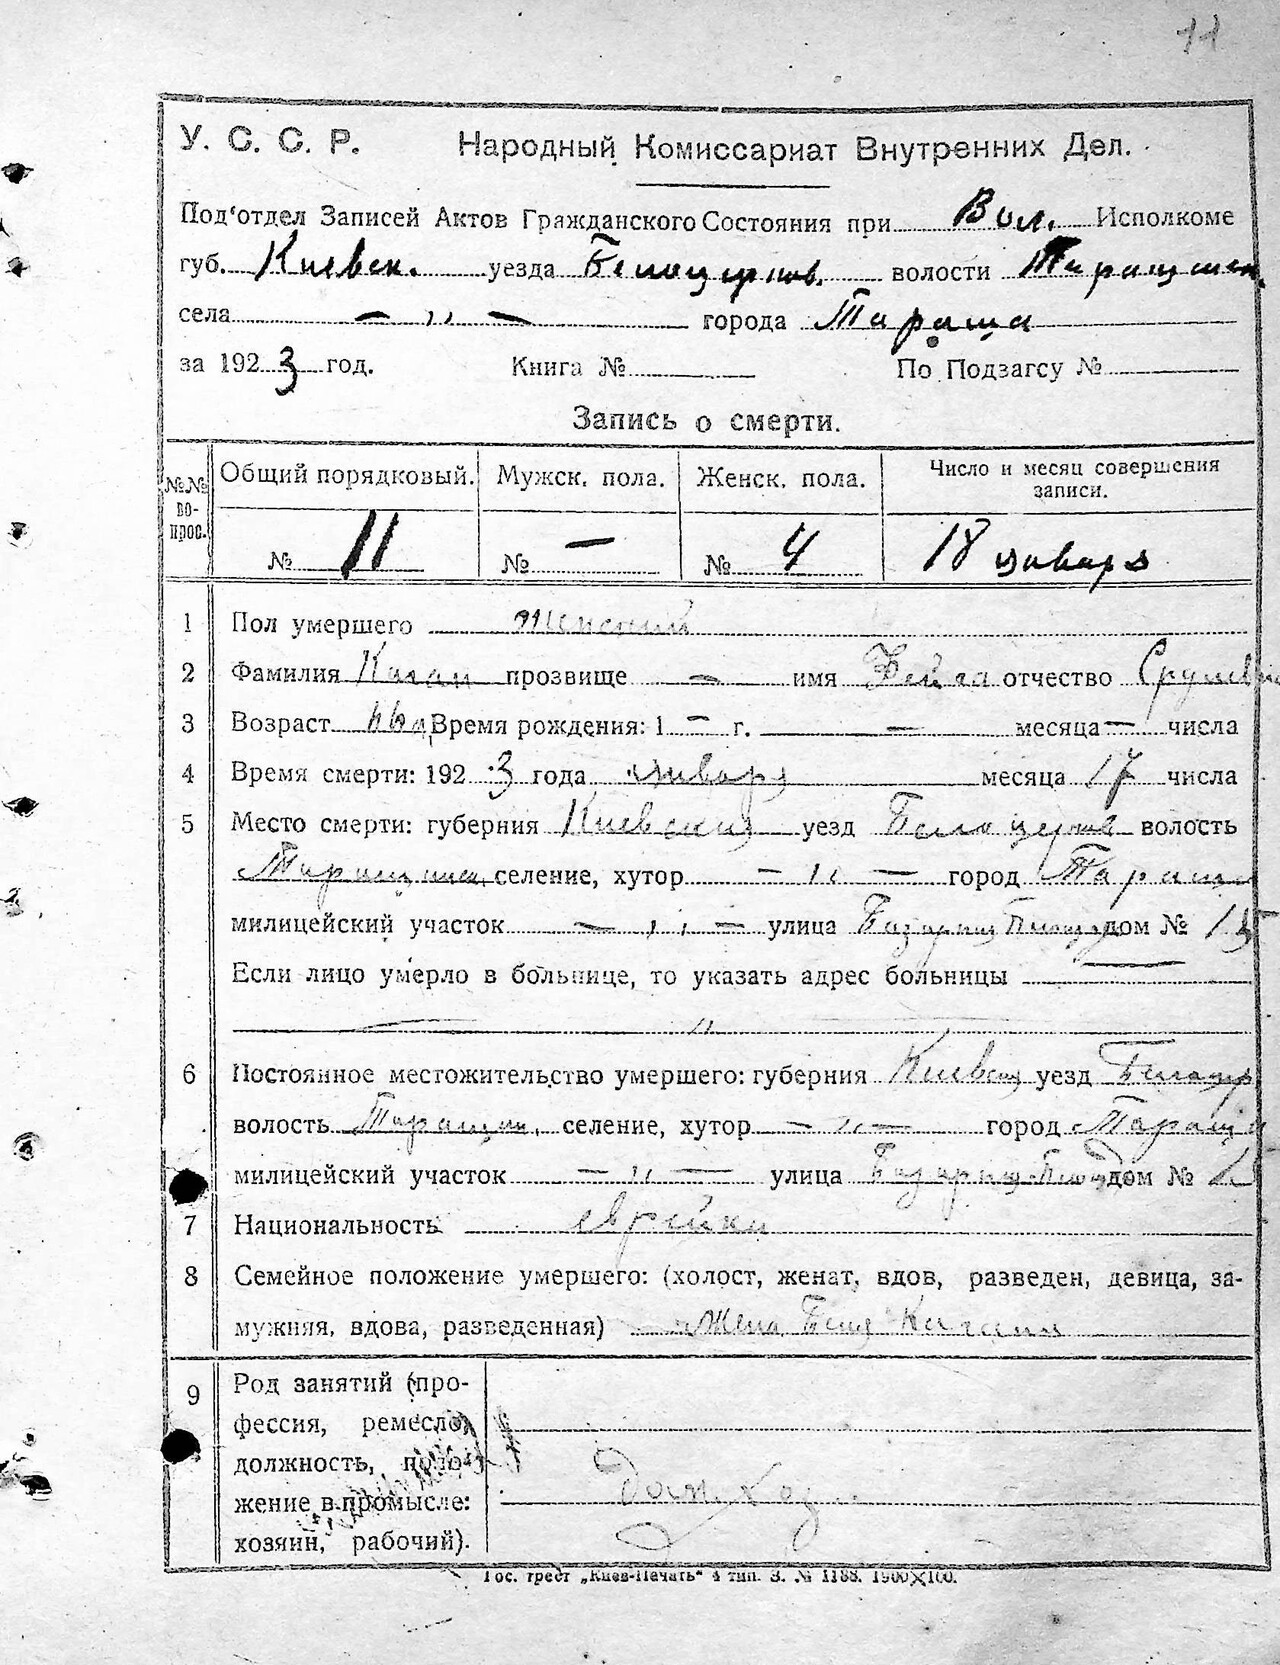 11
У. С. С. Р. Народный Комиссариат Внутренних Дел.
Под'отдел Записей Актов Гражданского Состояния при Вол. Исполкоме
губ. Киевск. уезда Белоцерков. волости Таращанск.
села — " — города Тараща
за 1923 год. Книга № По Подзагсу №
Запись о смерти.
№№ вопрос. Общий порядковый. Мужск. пола. Женск. пола. Число и месяц совершения записи.
№ 11 № — № 4 18 января
1 Пол умершего Женский
2 Фамилия Каган прозвище — имя Фейга отчество
3 Возраст 66 л. Время рождения: 1 — г. — месяца — числа
4 Время смерти: 1923 года января месяца 17 числа
5 Место смерти: губерния Киевская уезд Белоцерков волость
Таращанск. селение, хутор — " — город Тараща
милицейский участок — " — улица дом №
Если лицо умерло в больнице, то указать адрес больницы —
— " —
6 Постоянное местожительство умершего: губерния Киевск уезд Белоцер
волость Таращан. селение, хутор — " — город Тараща
милицейский участок — " — улица дом №
7 Национальность еврейка
8 Семейное положение умершего: (холост, женат, вдов, разведен, девица, за-
мужняя, вдова, разведенная) Жена Кагана
9 Род занятий (про-
фессия, ремесло,
должность, поло-
жение в промысле:
хозяин, рабочий).
дом. хоз
Гос. трест „Киев-Печать" 4 тип. З. № 1188. 1900×100.